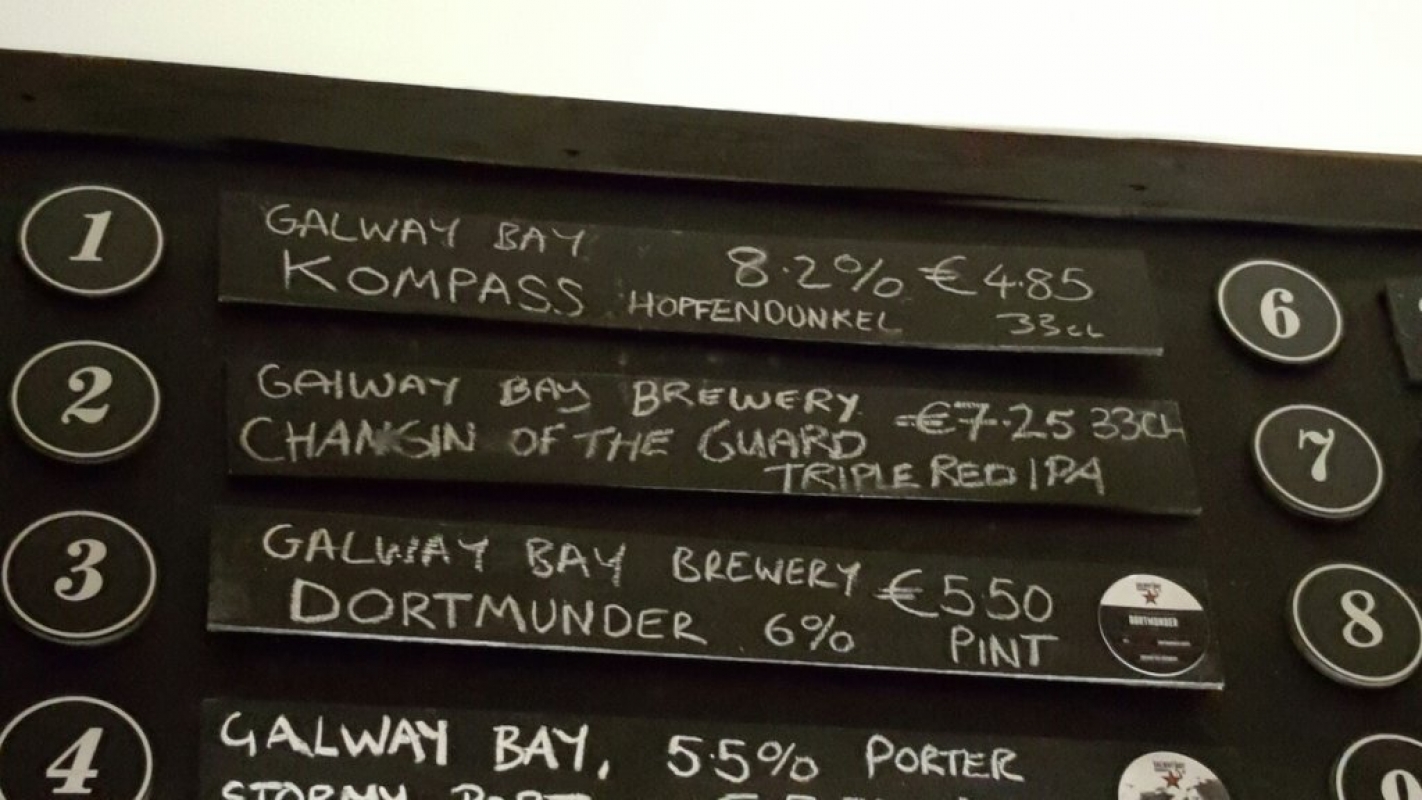 1
GALWAY BAY
KOMPASS HOPFENDUNKEL
8.2% €4.85
33CL
2
GALWAY BAY BREWERY €7.25 33CL
CHANGIN OF THE GUARD
TRIPLE RED IPA
3
GALWAY BAY BREWERY €5.50
DORTMUNDER 6% PINT
DORTMUNDER
4
GALWAY BAY, 5.5% PORTER
STORMY PORT
6
7
8